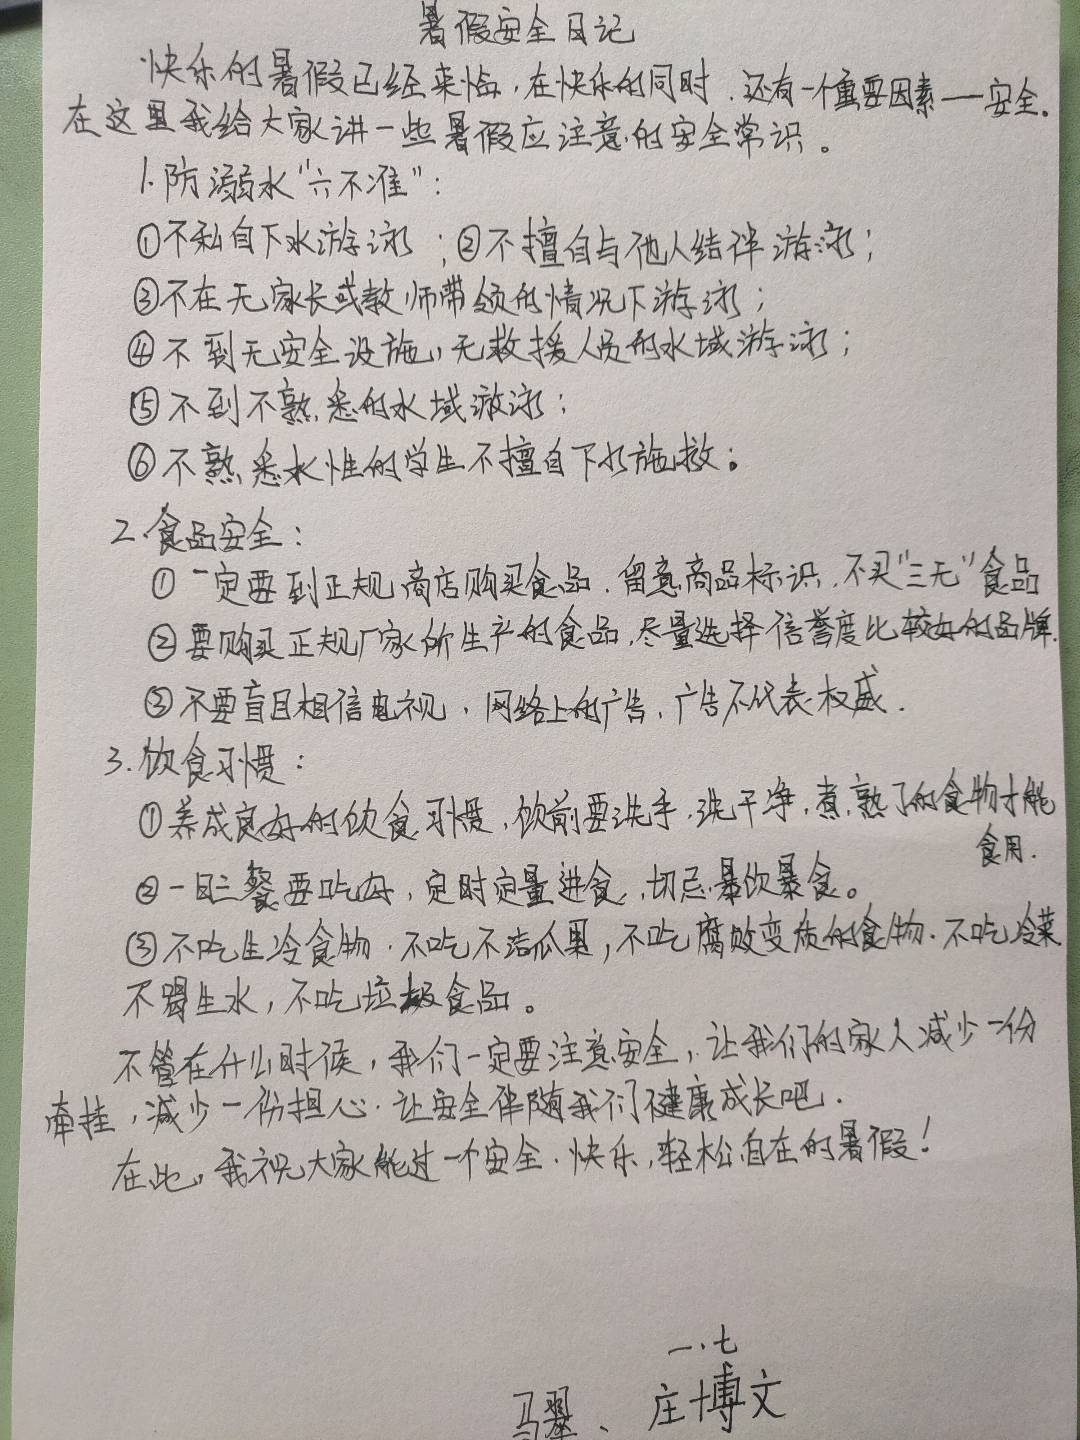 暑假安全日记
快乐的暑假已经来临,在快乐的同时.还有一个重要因素——安全.
在这里我给大家讲一些暑假应注意的安全常识。
1.防溺水“六不准”:
①不私自下水游泳;②不擅自与他人结伴游泳;
③不在无家长或教师带领的情况下游泳;
④不到无安全设施,无救援人员的水域游泳;
⑤不到不熟悉的水域游泳;
⑥不熟悉水性的学生不擅自下水施救。
2.食品安全:
①一定要到正规商店购买食品.留意商品标识.不买“三无”食品
②要购买正规厂家所生产的食品,尽量选择信誉度比较好的品牌.
③不要盲目相信电视,网络上的广告,广告不代表权威.
3.饮食习惯:
①养成良好的饮食习惯,饮前要洗手,洗干净,煮熟了的食物才能
食用.
②一日三餐要吃好,定时定量进食,切忌暴饮暴食。
③不吃生冷食物.不吃不洁瓜果,不吃腐败变质的食物.不吃冷菜
不喝生水,不吃垃圾食品。
不管在什么时候,我们一定要注意安全,让我们的家人减少一份
牵挂,减少一份担心.让安全伴随我们健康成长吧.
在此,我祝大家能过一个安全.快乐,轻松自在的暑假!
一.七
马、庄博文